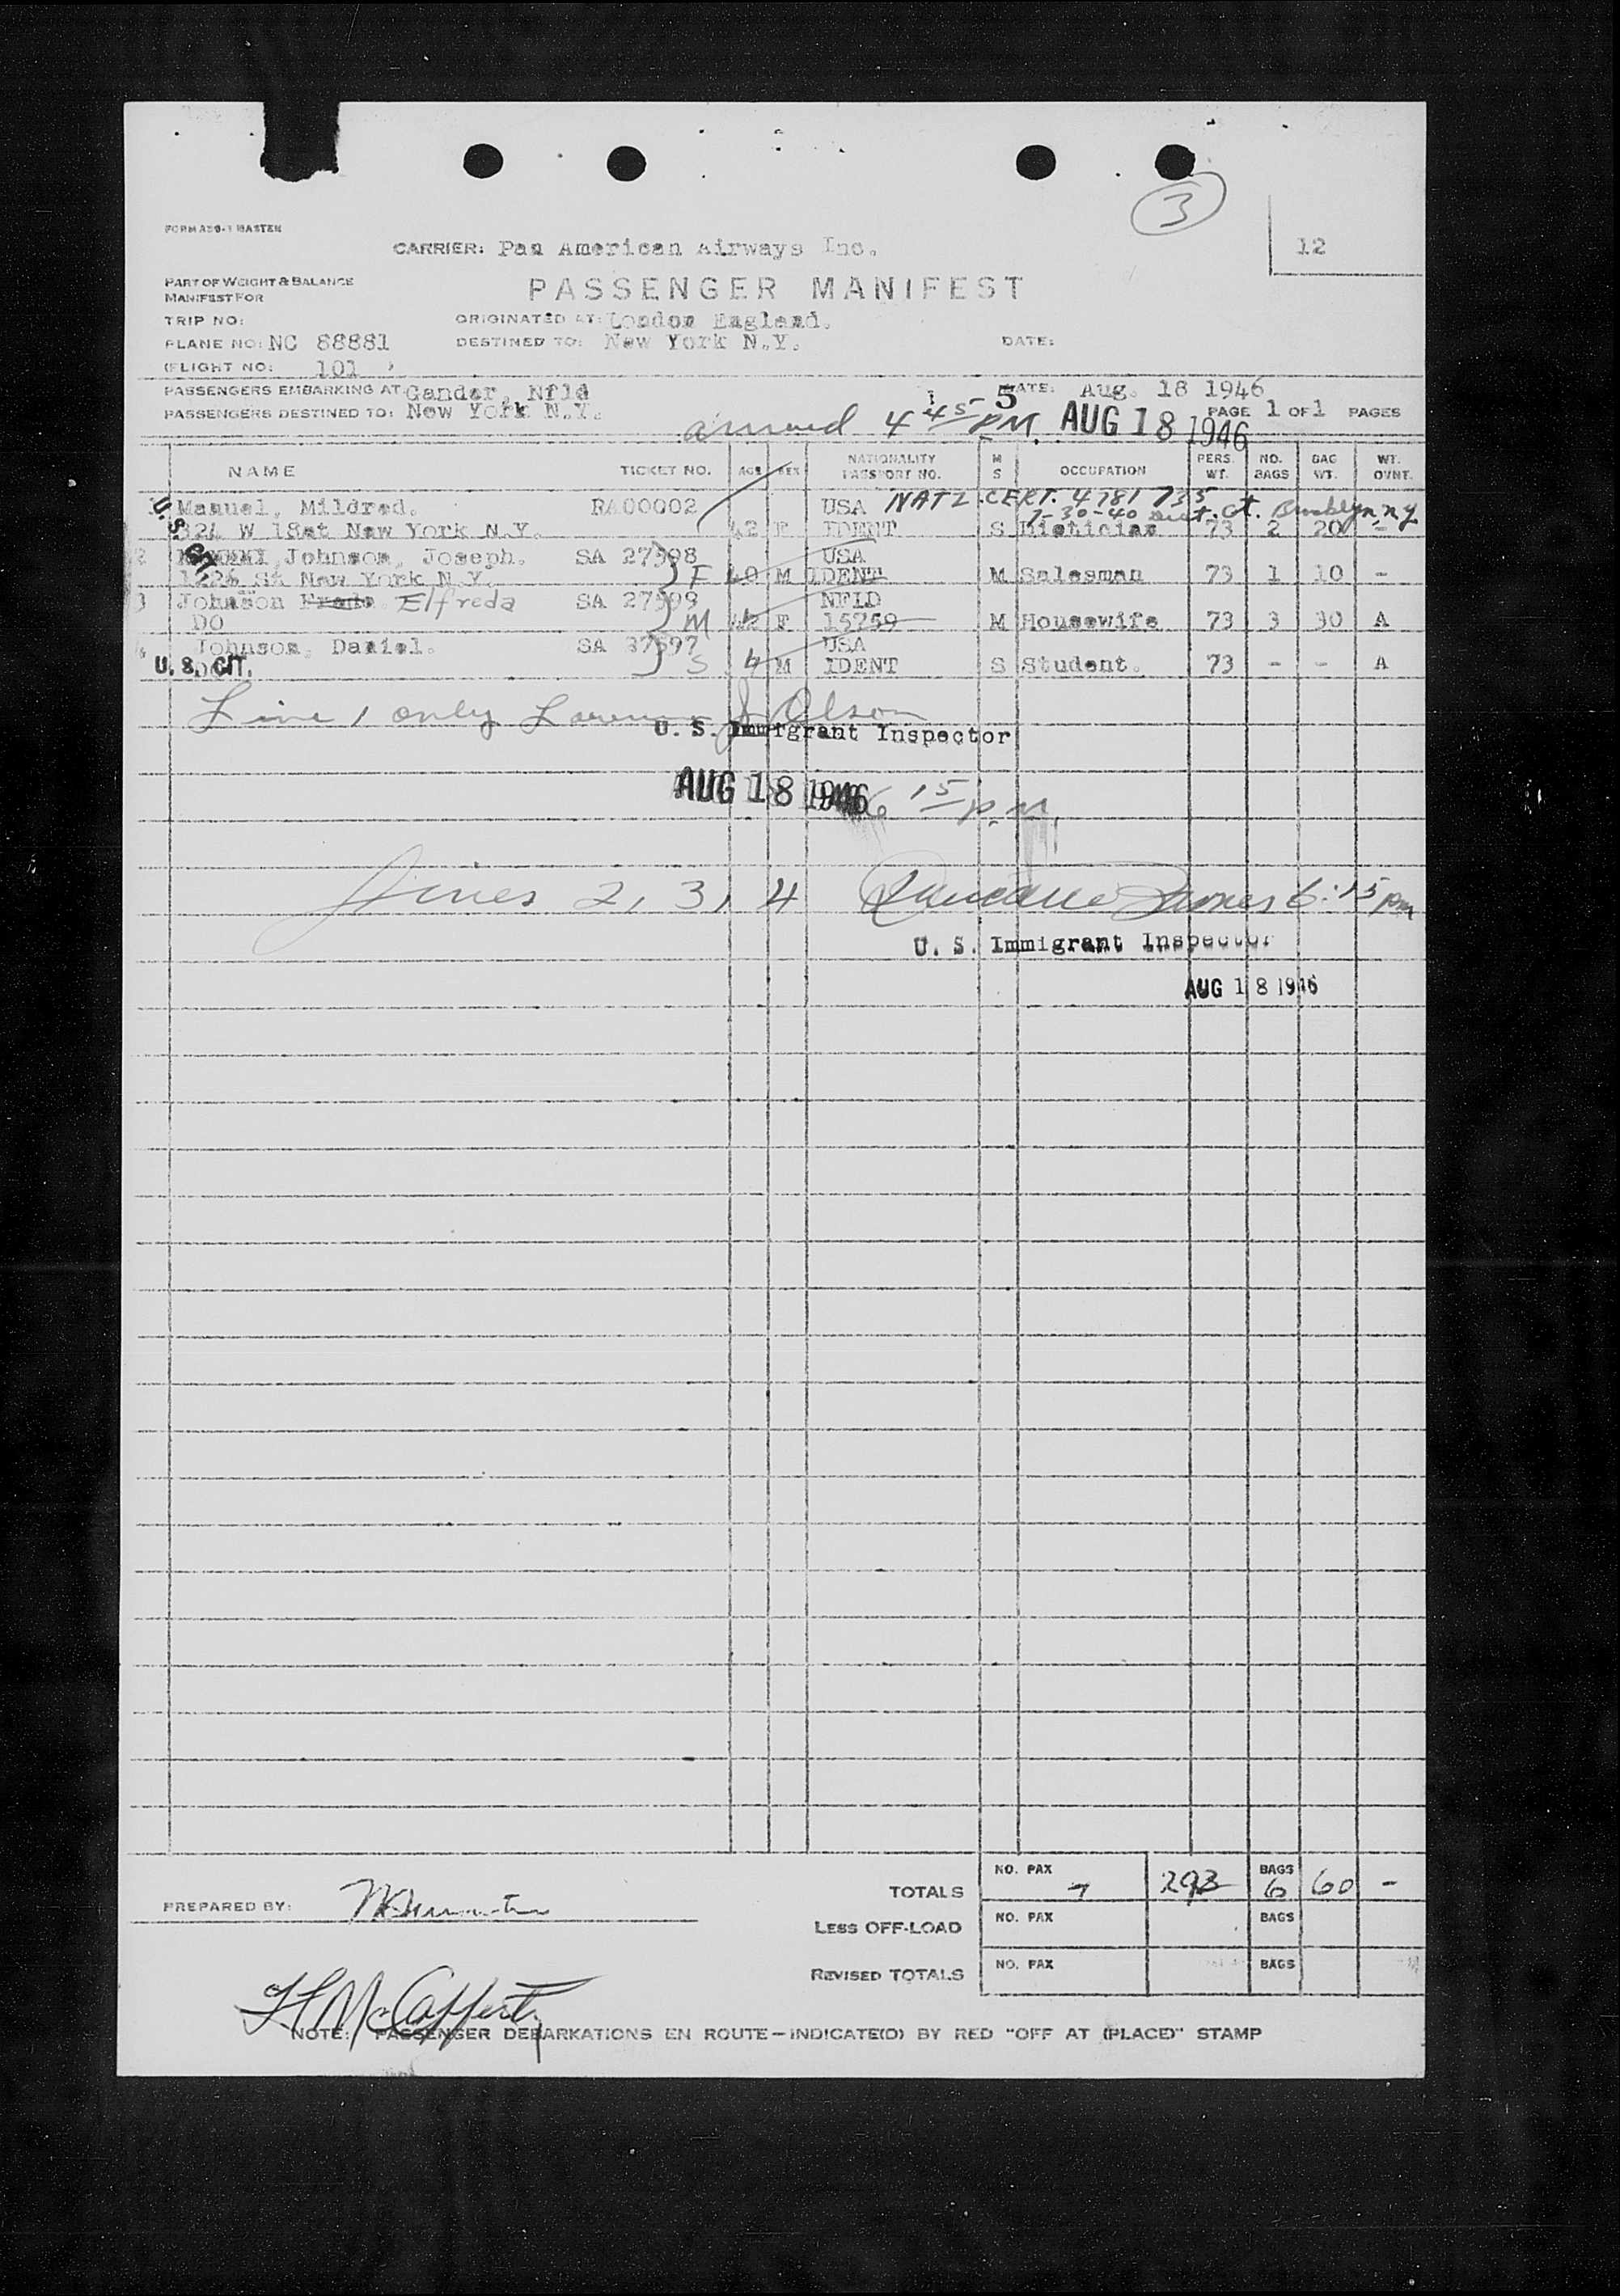 3
FORM A20-1 MASTER
12
CARRIER: Pan American Airways Inc.
PART OF WEIGHT & BALANCE
MANIFEST FOR
PASSENGER MANIFEST
TRIP NO:
ORIGINATED AT: London England.
PLANE NO: NC 88881
DESTINED TO: New York N.Y.
DATE:
(FLIGHT NO: 101 )
PASSENGERS EMBARKING AT Gander, Nfld
DATE: Aug. 18 1946
PASSENGERS DESTINED TO: New York N.Y.
PAGE 1 OF 1 PAGES
arrived 4 45 PM. 5 AUG 18 1946
NAME TICKET NO. AGE SEX NATIONALITY PASSPORT NO. M S OCCUPATION PERS. WT. NO. BAGS BAG WT. WT. OVNT.
1 Manuel, Mildred. RA00002 USA NATZ. CERT. 4781 735
7-30-40 Dist. Ct. Brooklyn NY
324 W 18st New York N.Y. 42 F IDENT S Dietician 73 2 20 -
U. S. CIT.
2 Johnson, Joseph. SA 27598 USA
St New York N.Y. F 40 M IDENT M Salesman 73 1 10 -
3 Johnson Elfreda SA 27599 NFLD
DO M F 15759 M Housewife 73 3 30 A
4 Johnson, Daniel. SA 27597 USA
U. S. CIT. S 4 M IDENT S Student. 73 - - A
Line 1 only Olson
U. S. Immigrant Inspector
AUG 18 1946 6 15 P.M.
Lines 2, 3, 4 6:15 pm
U. S. Immigrant Inspector
AUG 18 1946
TOTALS NO. PAX 293 BAGS 6 60 -
PREPARED BY:
LESS OFF-LOAD NO. PAX BAGS
REVISED TOTALS NO. PAX BAGS
McCafferty
NOTE: PASSENGER DEBARKATIONS EN ROUTE—INDICATE(D) BY RED "OFF AT (PLACE)" STAMP